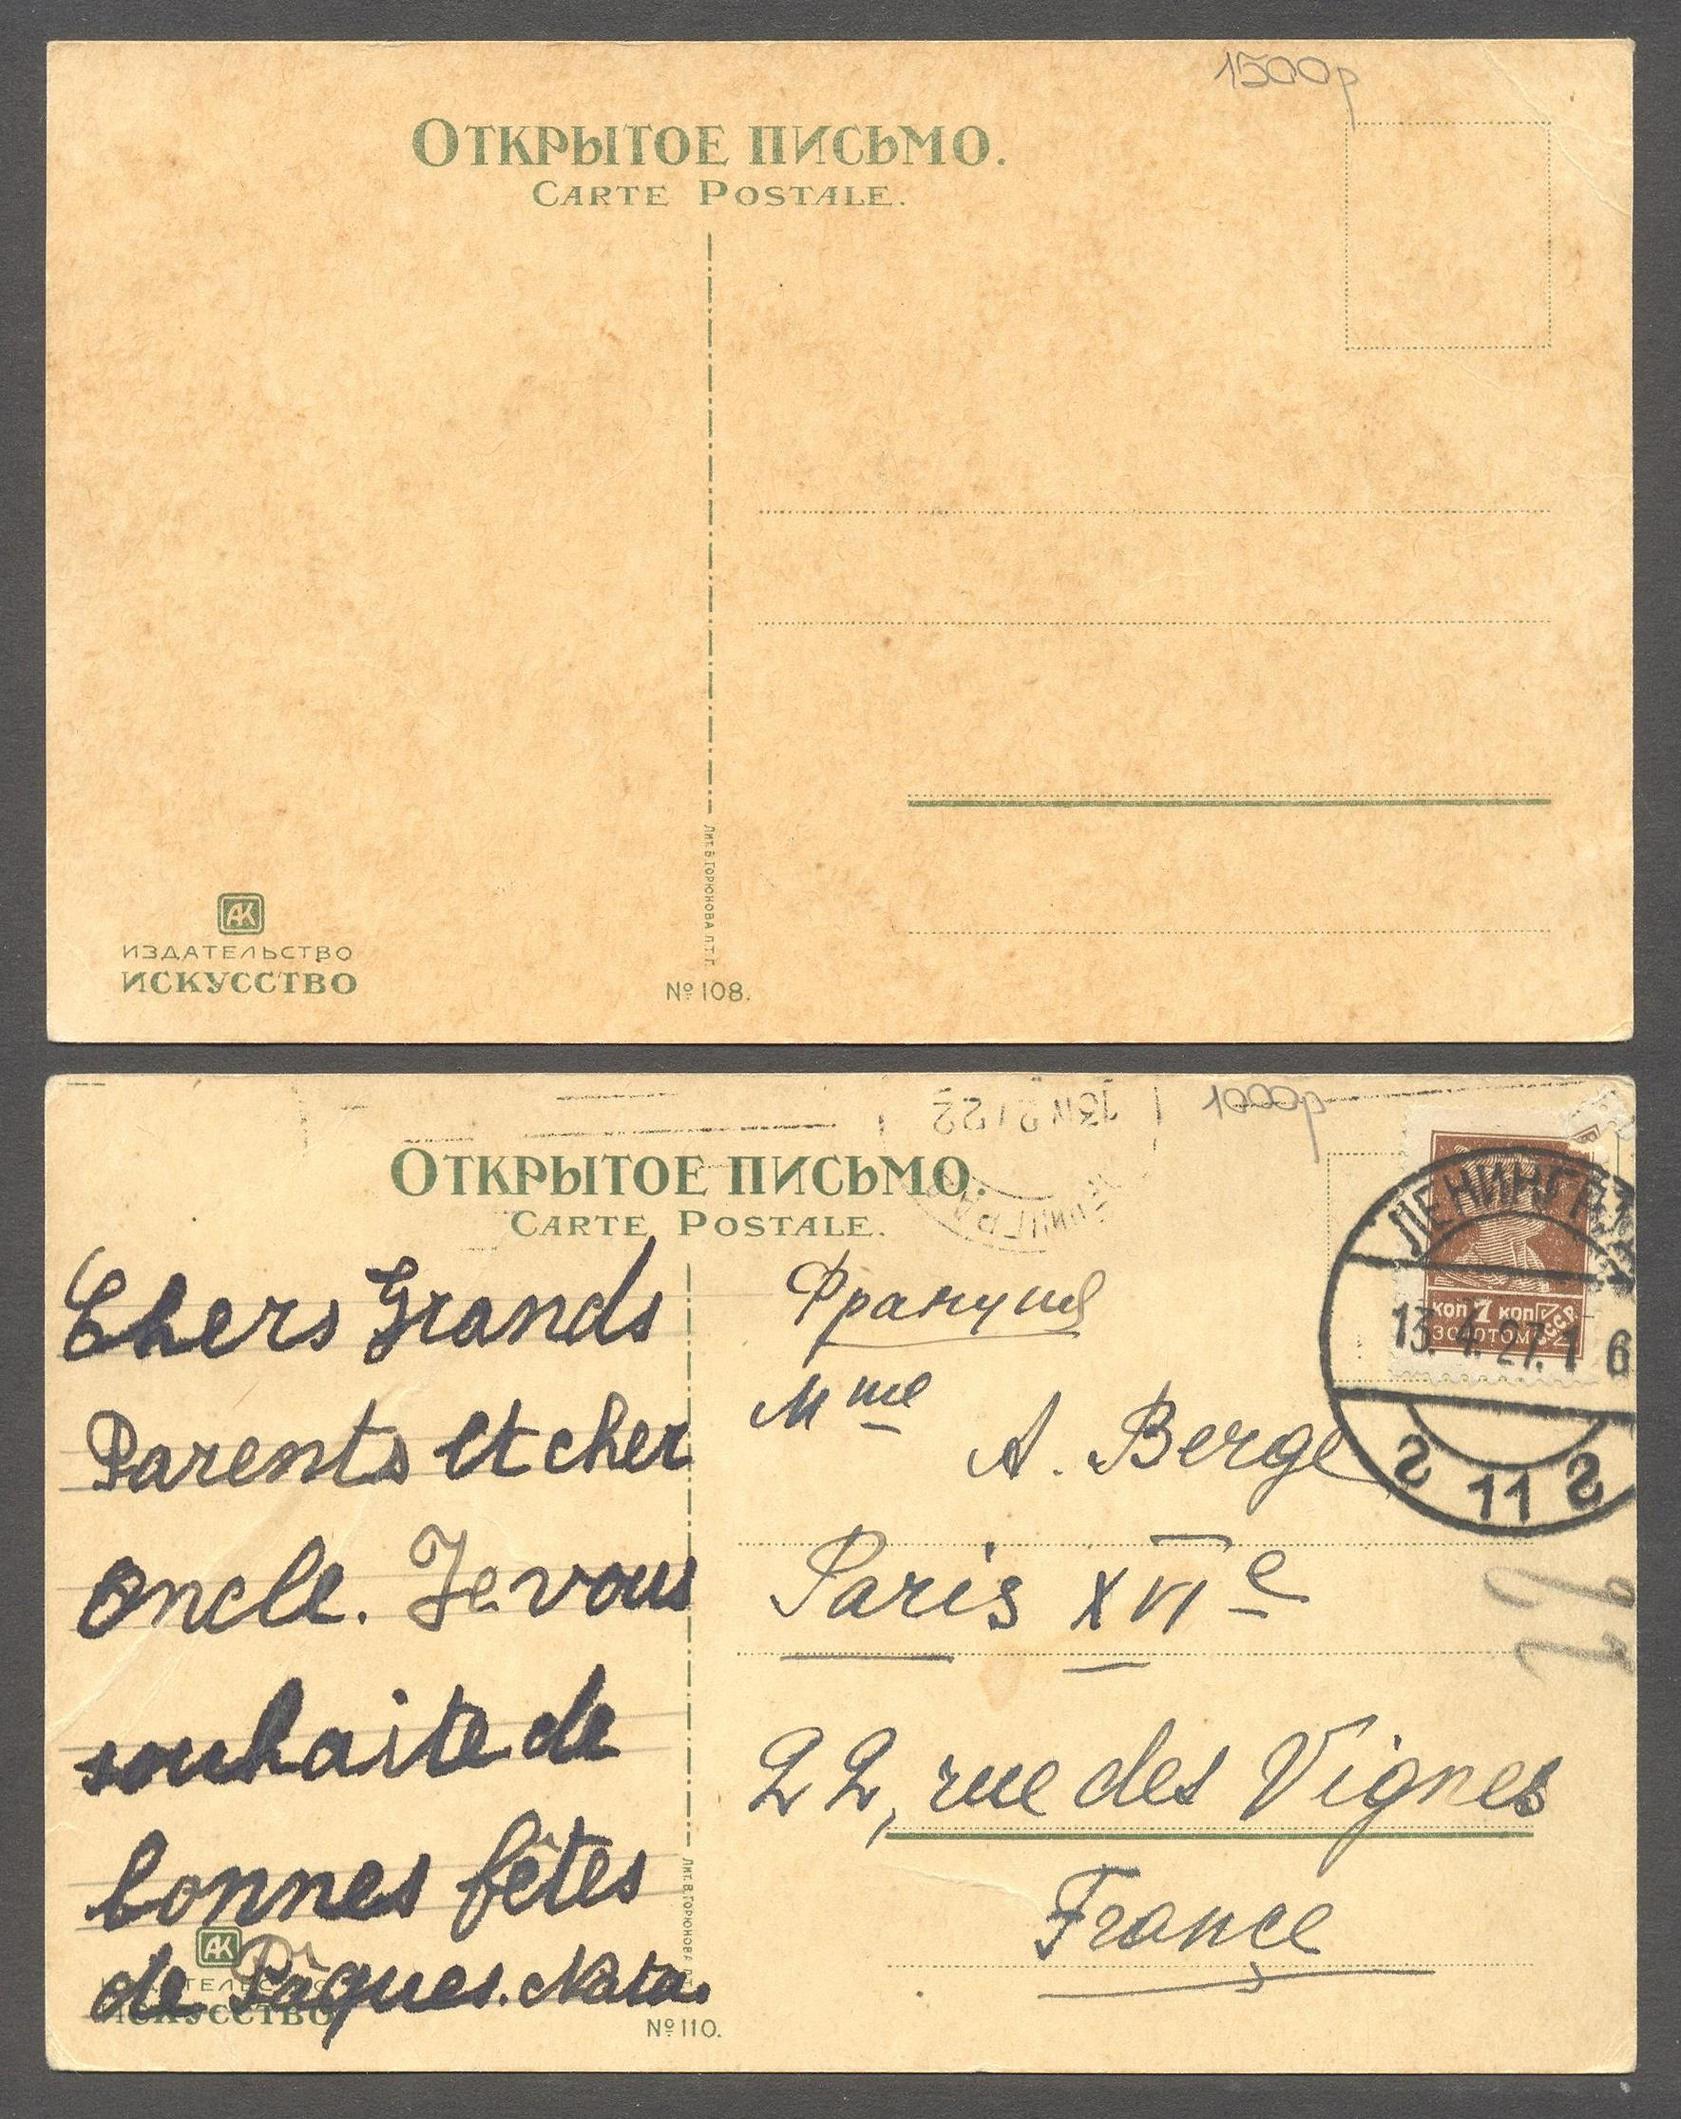 1500р
ОТКРЫТОЕ ПИСЬМО.
CARTE POSTALE.
ЛИТ. В. ГОРЮНОВА П.Т.Г.
АК
ИЗДАТЕЛЬСТВО
ИСКУССТВО
№ 108.
1000р
ОТКРЫТОЕ ПИСЬМО.
CARTE POSTALE.
Chers Grands
Parents et cher
oncle. Je vous
souhaite de
bonnes fêtes
de Pâques. Nata.
Франция
Mme
A. Berge
Paris XVIe
22, rue des Vignes
France
ЛЕНИНГРА
13.4.27.1 6
2 11 2
КОП 7 КОП
ЗОЛОТОМ
СССР
ЛИТ. В. ГОРЮНОВА
АК
ИСКУССТВО
№ 110.